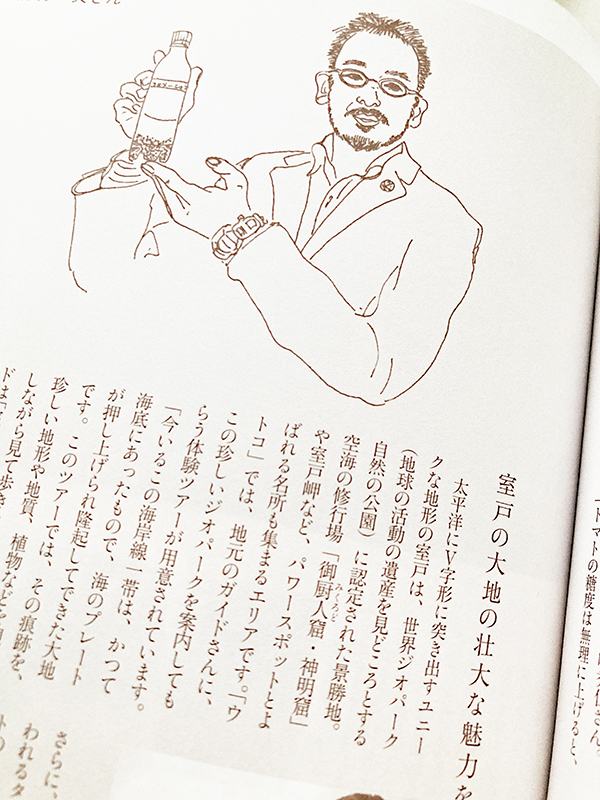 室戸の大地の壮大な魅力を
太平洋にV字形に突き出すユニー
クな地形の室戸は、世界ジオパーク
（地球の活動の遺産を見どころとする
自然の公園）に認定された景勝地。
空海の修行場「御厨人窟・神明窟」
みくろど
や室戸岬など、パワースポットとよ
ばれる名所も集まるエリアです。「ウ
トコ」では、地元のガイドさんに、
この珍しいジオパークを案内しても
らう体験ツアーが用意されています。
「今いるこの海岸線一帯は、かつて
海底にあったもので、海のプレート
が押し上げられ隆起してできた大地
です。このツアーでは、その痕跡を、
珍しい地形や地質、植物などを
しながら見て歩き
さらに、
われるタ
トマトの糖度は無理に上げると、